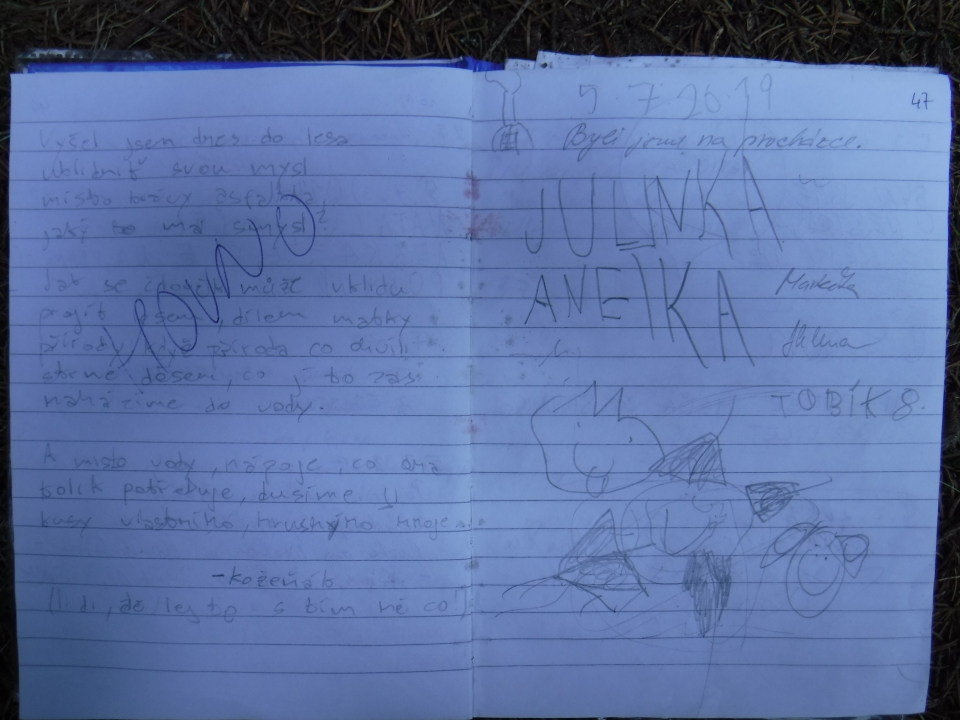 Vyšel jsem dnes do lesa
uklidnit svou mysl
místo krávy asfaltu,
jaký to má smysl?
Jak se člověk může v klidu
projít lesem, dílem matky
přírody, když příroda co chvíli
strne děsem, co jí to zas
naházíme do vody.
A místo vody, nápoje, co ona
tolik potřebuje, dusíme jí
kusy vlastního, hnusnýho hnoje...
-kožeňáb
(lidi, že
HOVNO
47
5. 7. 2019
Byli jsme na procházce.
JULINKA
ANEIKA
Markéta
Helena
TOBÍK 8.